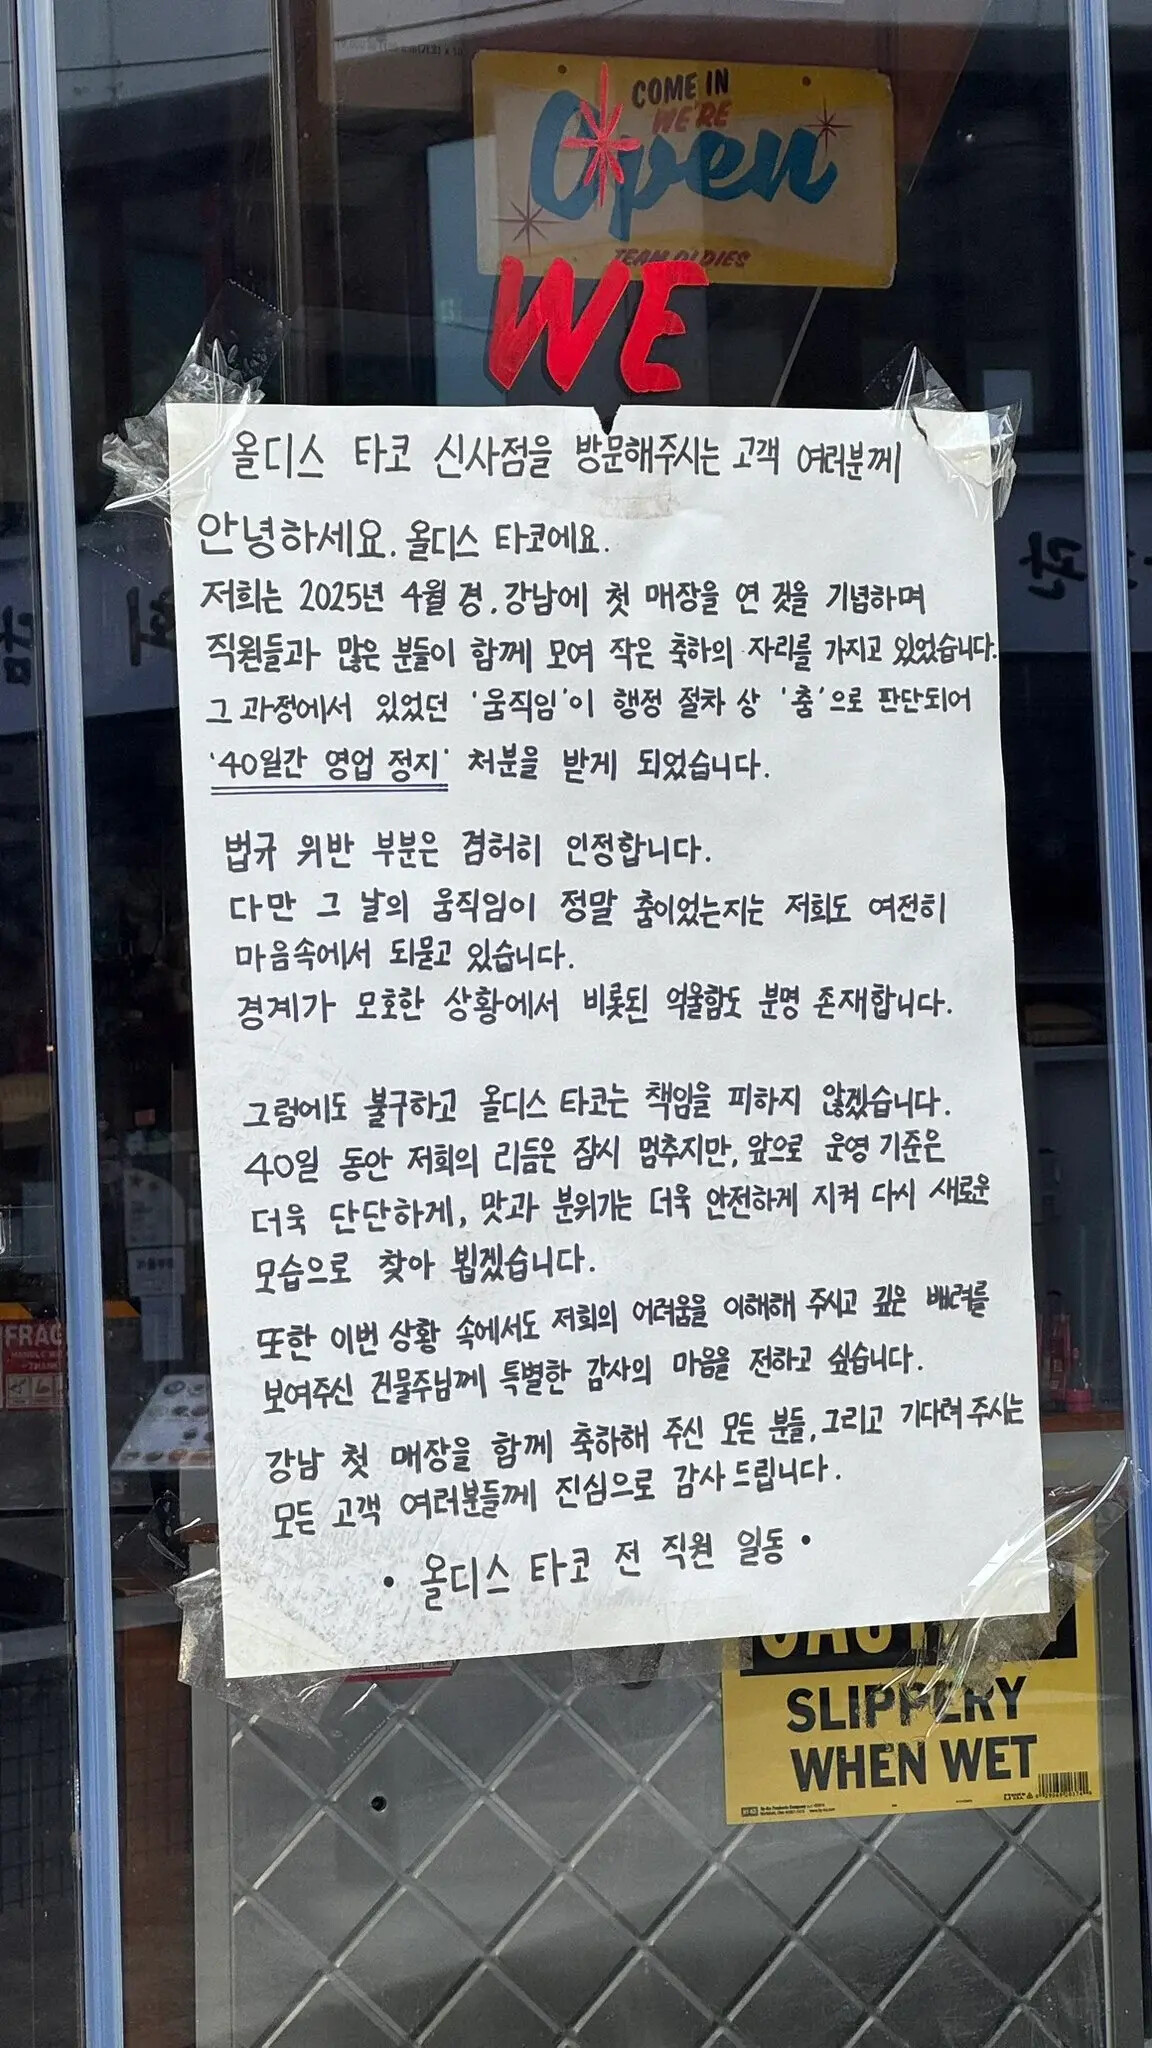 COME IN
WE'RE
Open
TEAM OLDIES
WE
올디스 타코 신사점을 방문해주시는 고객 여러분께
안녕하세요. 올디스 타코에요.
저희는 2025년 4월 경, 강남에 첫 매장을 연 것을 기념하며
직원들과 많은 분들이 함께 모여 작은 축하의 자리를 가지고 있었습니다.
그 과정에서 있었던 '움직임'이 행정 절차 상 '춤'으로 판단되어
'40일간 영업 정지' 처분을 받게 되었습니다.
법규 위반 부분은 겸허히 인정합니다.
다만 그 날의 움직임이 정말 춤이었는지는 저희도 여전히
마음속에서 되묻고 있습니다.
경계가 모호한 상황에서 비롯된 억울함도 분명 존재합니다.
그럼에도 불구하고 올디스 타코는 책임을 피하지 않겠습니다.
40일 동안 저희의 리듬은 잠시 멈추지만, 앞으로 운영 기준은
더욱 단단하게, 맛과 분위기는 더욱 안전하게 지켜 다시 새로운
모습으로 찾아 뵙겠습니다.
또한 이번 상황 속에서도 저희의 어려움을 이해해 주시고 깊은 배려를
보여주신 건물주님께 특별한 감사의 마음을 전하고 싶습니다.
강남 첫 매장을 함께 축하해 주신 모든 분들, 그리고 기다려 주시는
모든 고객 여러분들께 진심으로 감사 드립니다.
• 올디스 타코 전 직원 일동 •
FRAG
SLIPPERY
WHEN WET